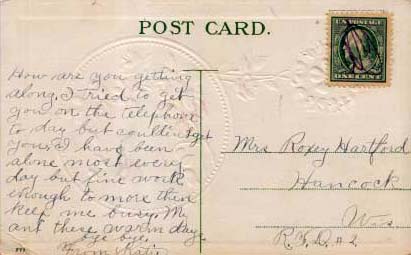 POST CARD.
U.S. POSTAGE
ONE CENT
How are you getting
along. I tried to get
you on the telephone
to day but couldent get
you. I have been
alone most every
day but fine work
enough to more then
keep me busy. My
ant these warm days
bye bye.
From Katie
Mrs Roxey Hartford
Hancock
Wis
R.F.D. #2